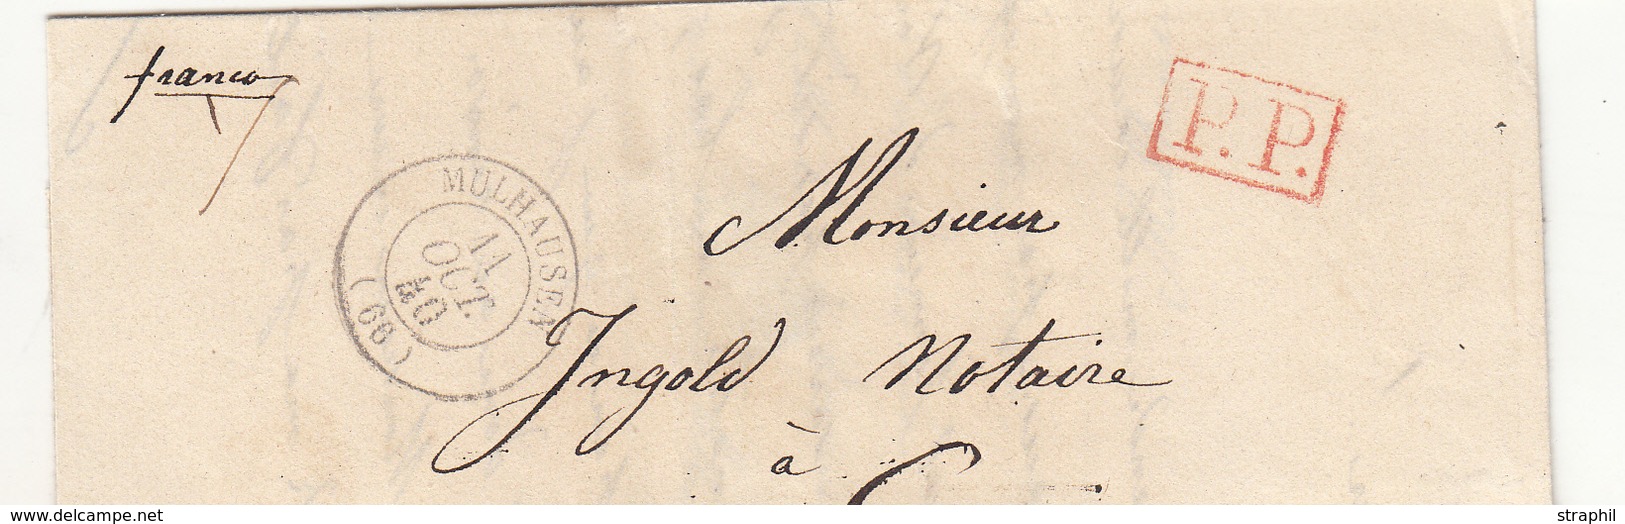 franco
P.P.
MULHAUSEN
11
OCT.
40
(66)
Monsieur
Ingold Notaire
à
www.delcampe.net
straphil